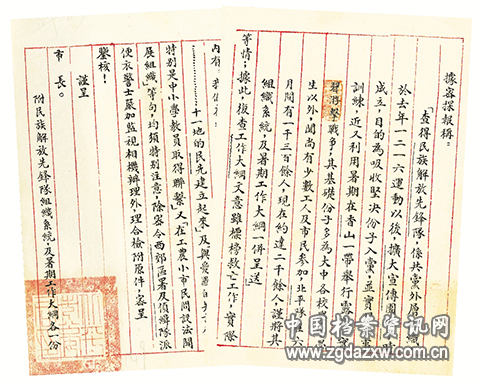 據密探報稱：
「查得民族解放先鋒隊，係共黨外層組織
於去年一二一六運動以後，擴大宣傳
成立，目的為吸收堅决份子入黨，並實
訓練，近又利用暑期在香山一帶舉行露
戰多，其基礎份子多為大中各校
生以外，聞尚有少數工人及市民參加，北平隊 六
月間有一千三百餘人，現在約達二千餘人，謹將其
組織系統，及暑期工作大綱一併呈送」
等情；據此，復查工作大綱文意雖標榜救亡工作，實際
內有
十一地的民先建立起來」及與
特別是中小學教員取得聯繫」又在工農小市民間設法開
展組織」等句，均須特別注意，除密令西郊區署及偵緝隊派
便衣警士嚴加監視相機辦理外，理合檢附原件，密呈
鑒核！
謹呈
市長。
附民族解放先鋒隊組織系統及暑期工作大綱各一份
中国档案资讯网
www.zgdazxw.com.cn